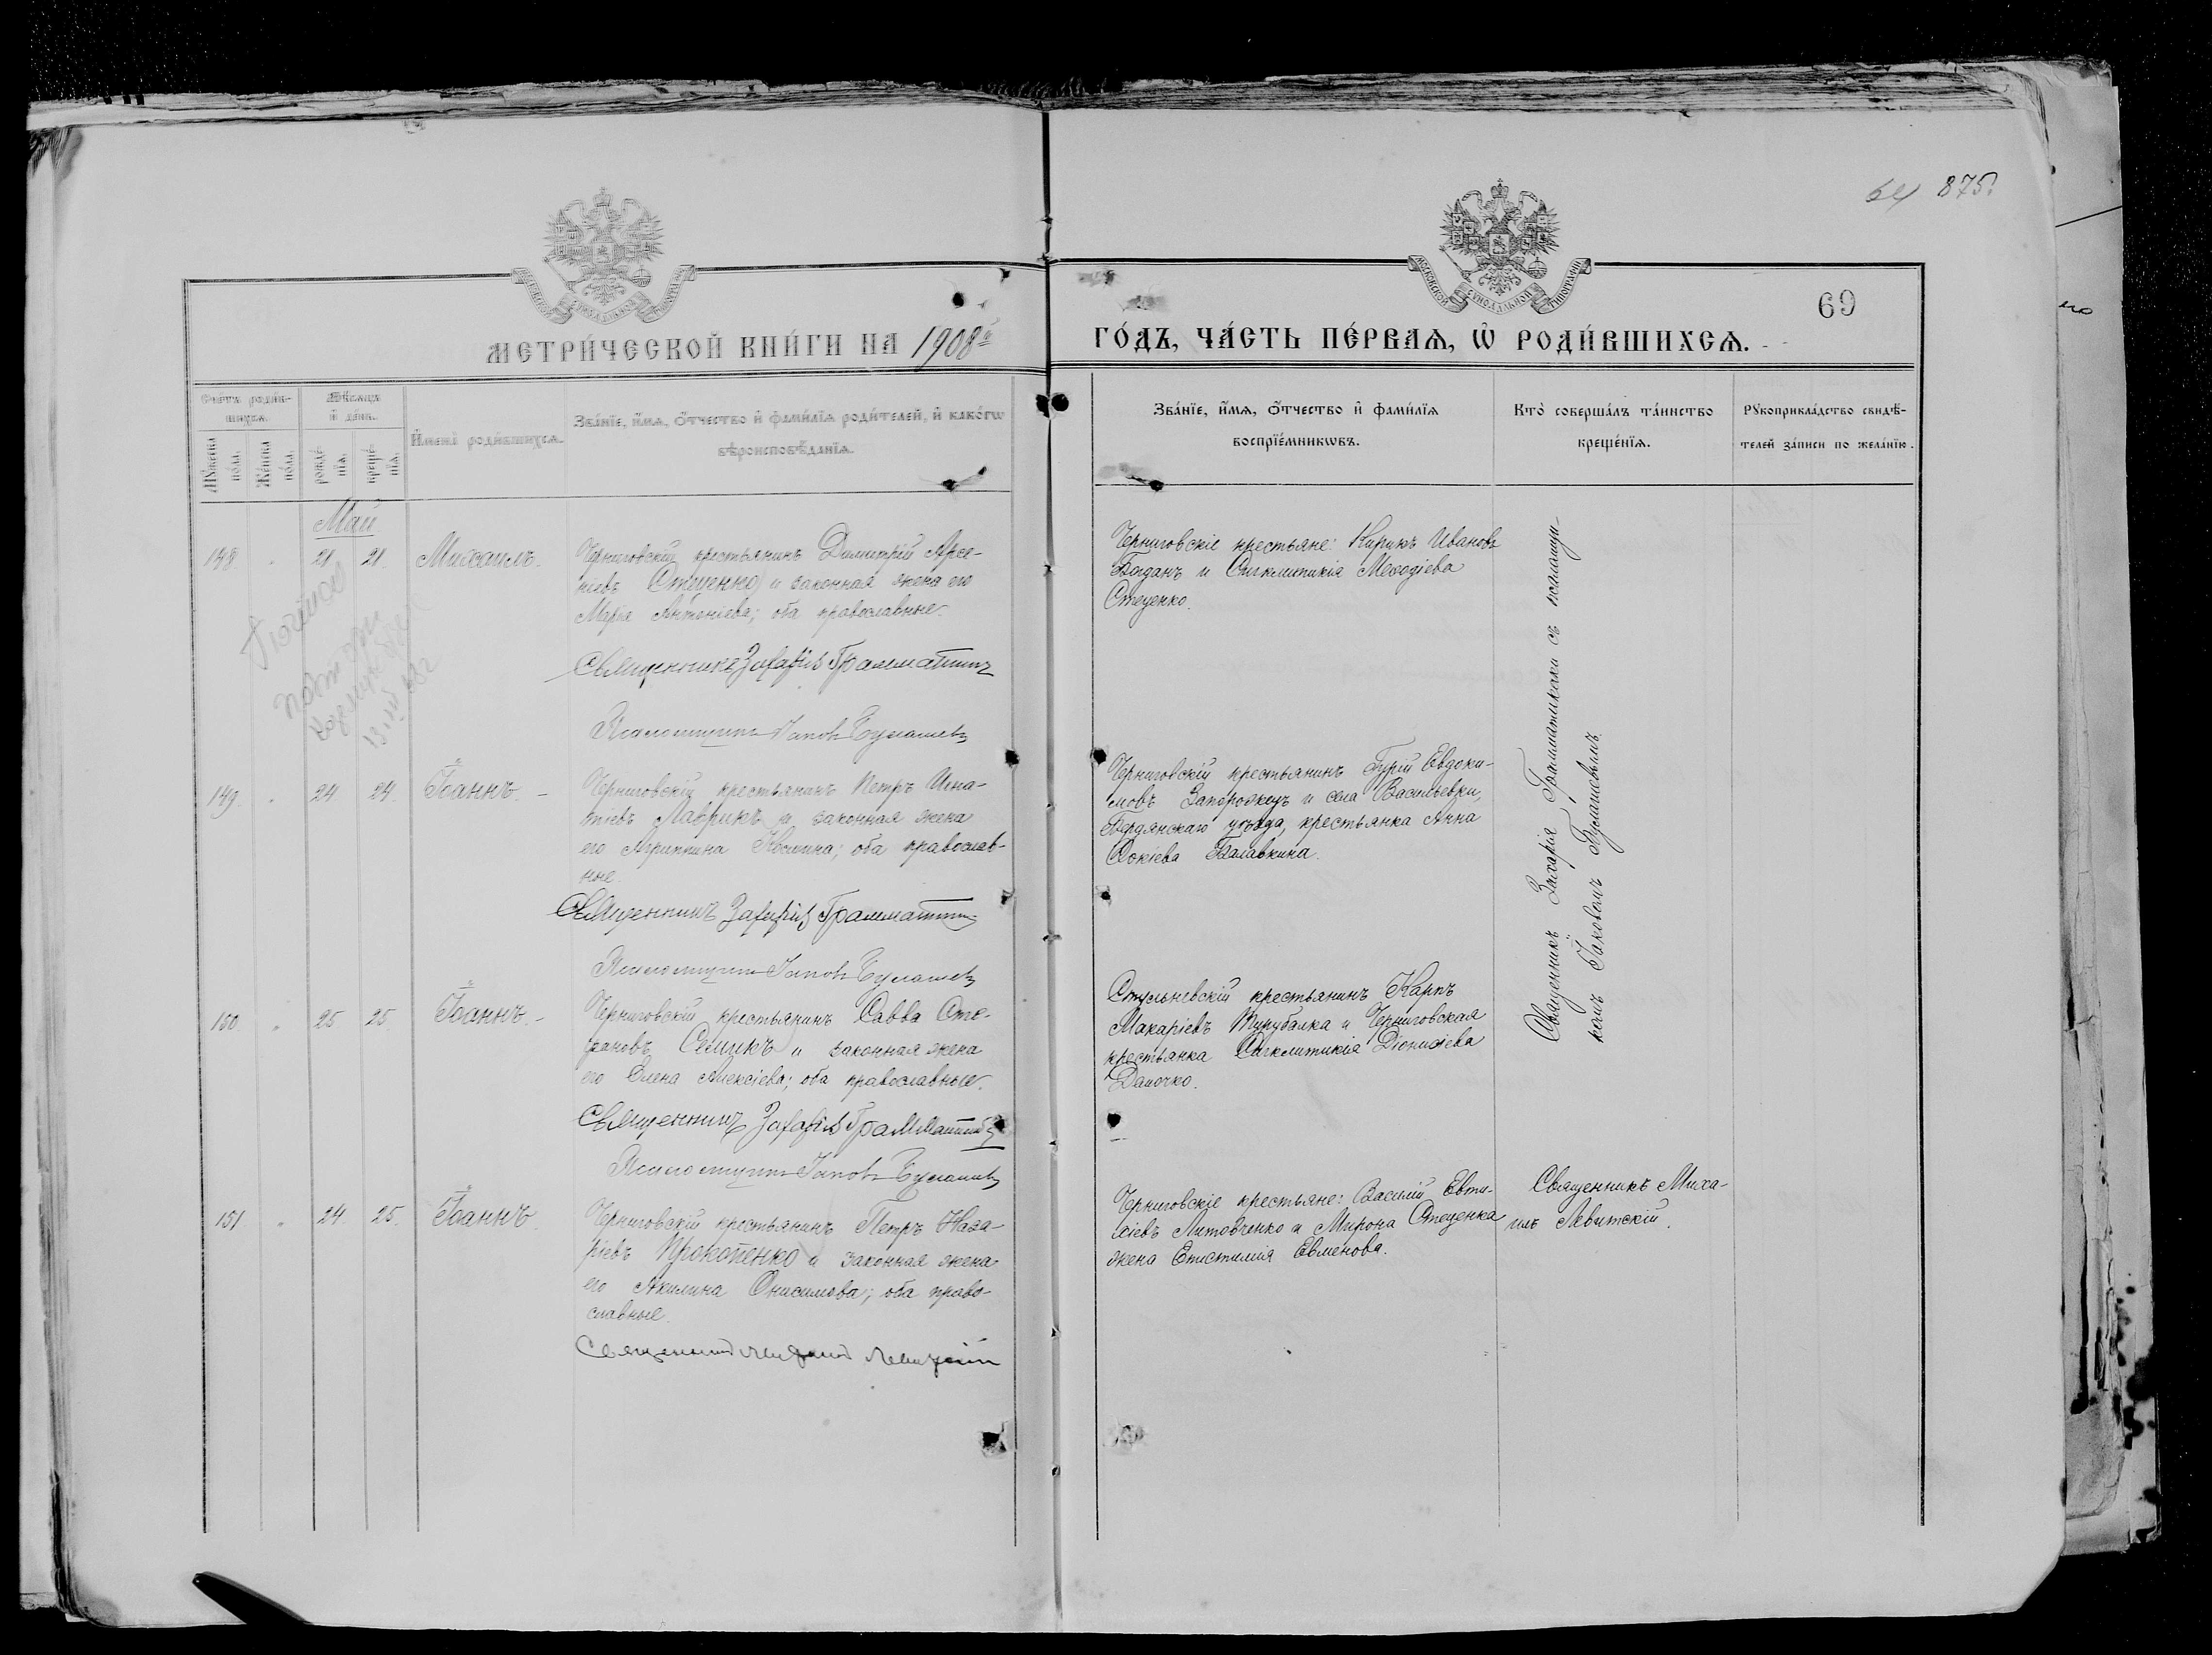 64 875
69
МОСКОВСКОЙ СѴНОДАЛЬНОЙ ТИПОГРАФІИ
МЕТРИ́ЧЕСКОЙ КНИ́ГИ НА 1908й
ГО́ДЪ, ЧА́СТЬ ПЕ́РВАѦ, Ѡ҆ РОДИ́ВШИХСѦ.
Сче́тъ роди́в-
шихсѧ.
Мѣ́сѧцъ
и҆ де́нь.
Мꙋ́жеска
по́ла.
Же́нска
по́ла.
рожде́-
нїѧ.
креще́-
нїѧ.
И҆мена̀ роди́вшихсѧ.
Зва́нїе, и҆́мѧ, ѻ҆́тчество и҆ фами́лїѧ роди́телей, и҆ како́гѡ
вѣроисповѣ́данїѧ.
Зва́нїе, и҆́мѧ, ѻ҆́тчество и҆ фами́лїѧ
воспрїе́мникѡвъ.
Кто̀ соверша́лъ та́инство
креще́нїѧ.
Рꙋкоприкла́дство свидѣ́-
телей за́писи по жела́нїю.
Май
148. " 21 21. Михаилъ.
Черниговскій крестьянинъ Димитрій Арсе-
ніевъ Стеценко и законная жена его
Марія Антоніева; оба православные.
Священникъ Захарія Грамматикъ
Псаломщикъ Іаковъ Бугашевъ
Черниговскіе крестьяне: Кирикъ Ивановъ
Богданъ и Сигклитикія Меѳодіева
Стеценко.
Священникъ Захарія Грамматикаки съ псаломщи-
комъ Іаковомъ Бугашевымъ.
149. " 24 24. Іоаннъ. -
Черниговскій крестьянинъ Петръ Игна-
тіевъ Лаврикъ и законная жена
его Агриппина Космина; оба православ-
ные.
Священникъ Захарія Грамматикъ
Псаломщикъ Іаковъ Бугашевъ
Черниговскій крестьянинъ Гурій Евдоки-
мовъ Запорожецъ и села Васильевки,
Бердянскаго уѣзда, крестьянка Анна
Ѳокіева Балавкина.
150. " 25 25 Іоаннъ. -
Черниговскій крестьянинъ Савва Сте-
фановъ Семикъ и законная жена
его Елена Алексіева; оба православные.
Священникъ Захарія Грамматикъ
Псаломщикъ Іаковъ Бугашевъ
Стульневскій крестьянинъ Карпъ
Макаріевъ Турубалка и Черниговская
крестьянка Сигклитикія Діонисіева
Дапочко.
151 " 24. 25. Іоаннъ.
Черниговскій крестьянинъ Петръ Наза-
ріевъ Прокопенко и законная жена
его Акилина Онисимова; оба право-
славные.
Священникъ Михаилъ Левитскій
Черниговскіе крестьяне: Василій Евти-
хіевъ Литовченко и Мирона Стеценка
жена Епистимія Евменова.
Священникъ Миха-
илъ Левитскій.